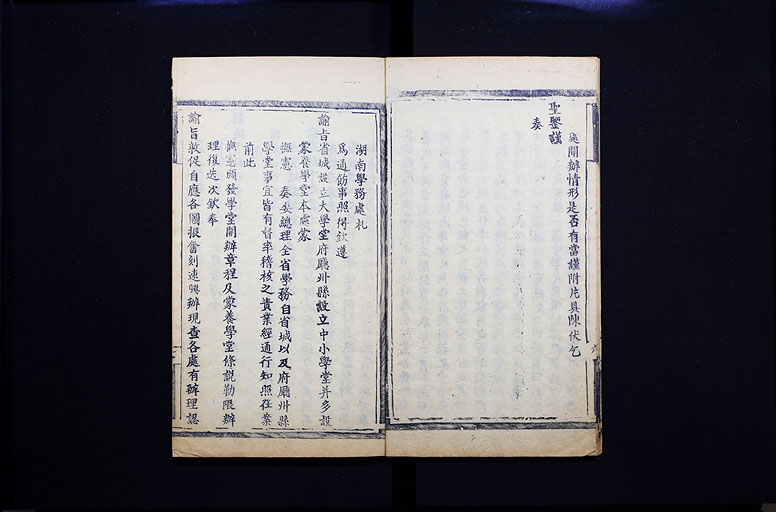 處開辦情形是否有當謹附片具陳伏乞
聖鑒謹
奏
湖南學務處札
爲通飭事照得欽遵
諭旨省城設立大學堂府廳州縣設立中小學堂并多設
蒙養學堂本處蒙
撫憲 奏委總理全省學務自省城以及府廳州縣
學堂事宜皆有督率稽核之責業經通行知照在案
前此
撫憲頒發學堂開辦章程及蒙養學堂條説勒限辦
理復迭次欽奉
諭旨敦促自應各圖振奮刻速興辦現查各處有辦理認